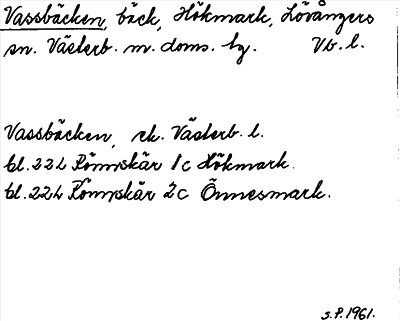 Vassbäcken, bäck, Hökmark, Lövångers
sn. Västerb. m. doms. bg. Vb. l.
Vassbäcken, ek. Västerb. l.
bl. 22L Rönnskär 1c Hökmark.
bl. 22L Rönnskär 2c Önnesmark.
S.P. 1961.